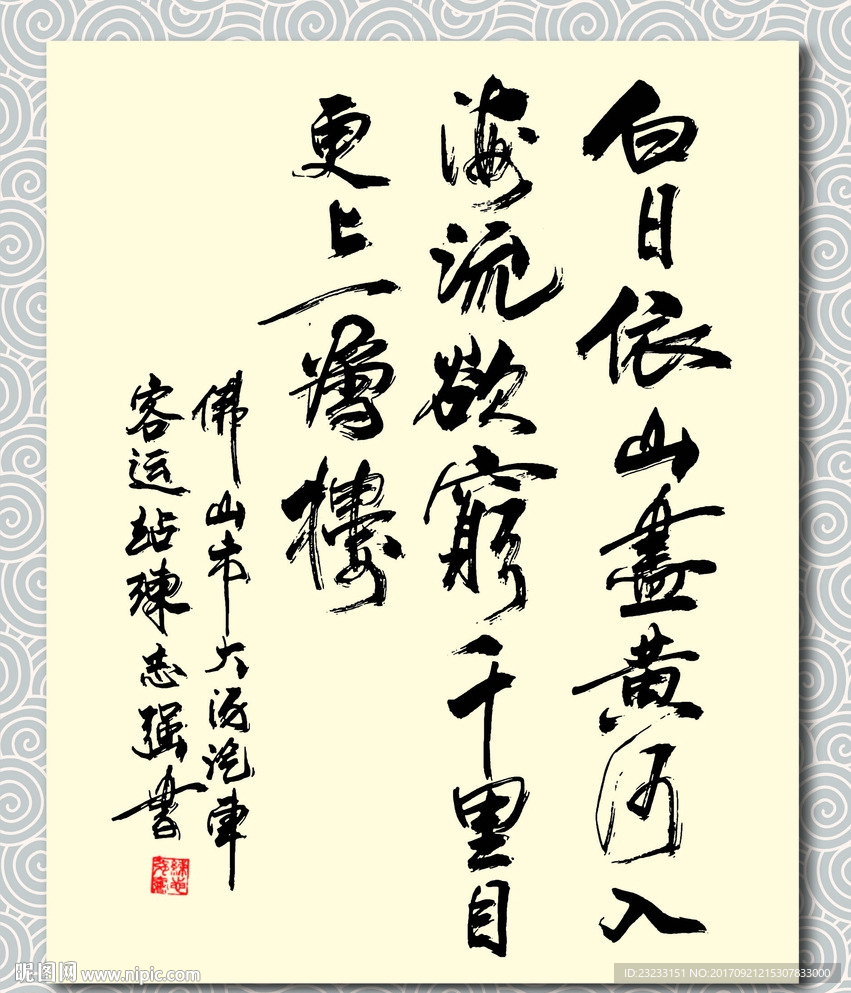 白日依山盡黄河入
海流欲窮千里目
更上一層樓
佛山市大沥汽車
客运站练志强書
昵图网 www.nipic.com
ID:23233151 NO:20170921215307833000